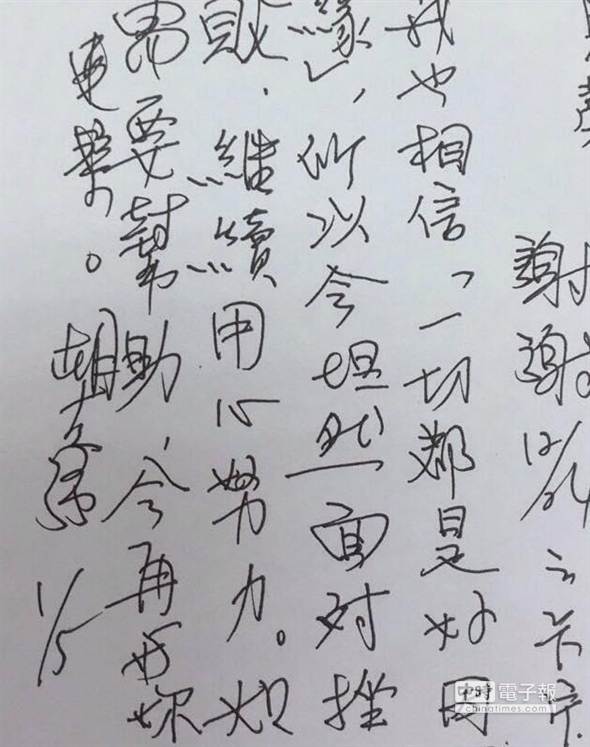 謝謝
12/24之卡片.
我也相信「一切都是好因
緣」,所以會坦然面對挫
敗,繼續用心努力。如
需要幫助,會再與妳
連繫。
1/5
中時電子報
chinatimes.com